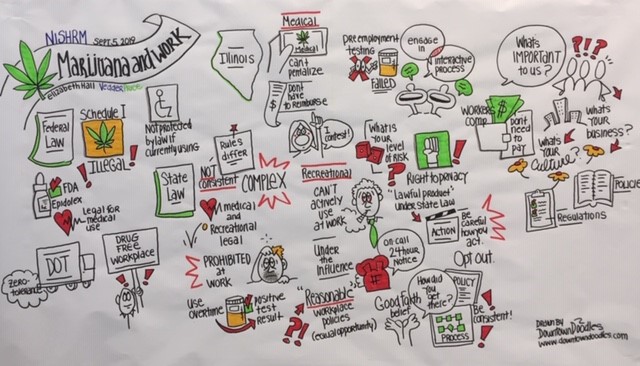 NISHRM
Sept. 5, 2019
Marijuana and Work
Elizabeth Hall
Federal
Law
Schedule I
Illegal!
Not protected
by law if
currently using
FDA
Epidolex
Legal for
medical
use
State
Law
Rules
differ
Not
consistent
Complex
Medical
and
Recreational
legal
Zero-
tolerance
DOT
Drug
Free
Workplace
Prohibited
at
work
Use
overtime
Positive
test
result
Illinois
Medical
Medical
Can't
penalize
Don't
have to
reimburse
I
contest!
Pre employment
testing
Failed
engage
in
interactive
process
Workers
comp
$
Don't
need
to
pay
What is
your
level
of risk?
Right to privacy
"Lawful product"
under state law
Recreational
Can't
actively
use
at work
Action
Be
careful
how you
act.
Opt out.
Under
the
Influence
On-call
24 hour
notice
"Reasonable"
workplace
policies
(equal opportunity)
Good faith
belief
How did
you
get
there?
Policy
Process
Be
consistent!
What's
important
to us?
?!?
What's
your
business?
What's
your
culture?
Policies
Regulations
Drawn by
DowntownDoodles
www.downtowndoodles.com